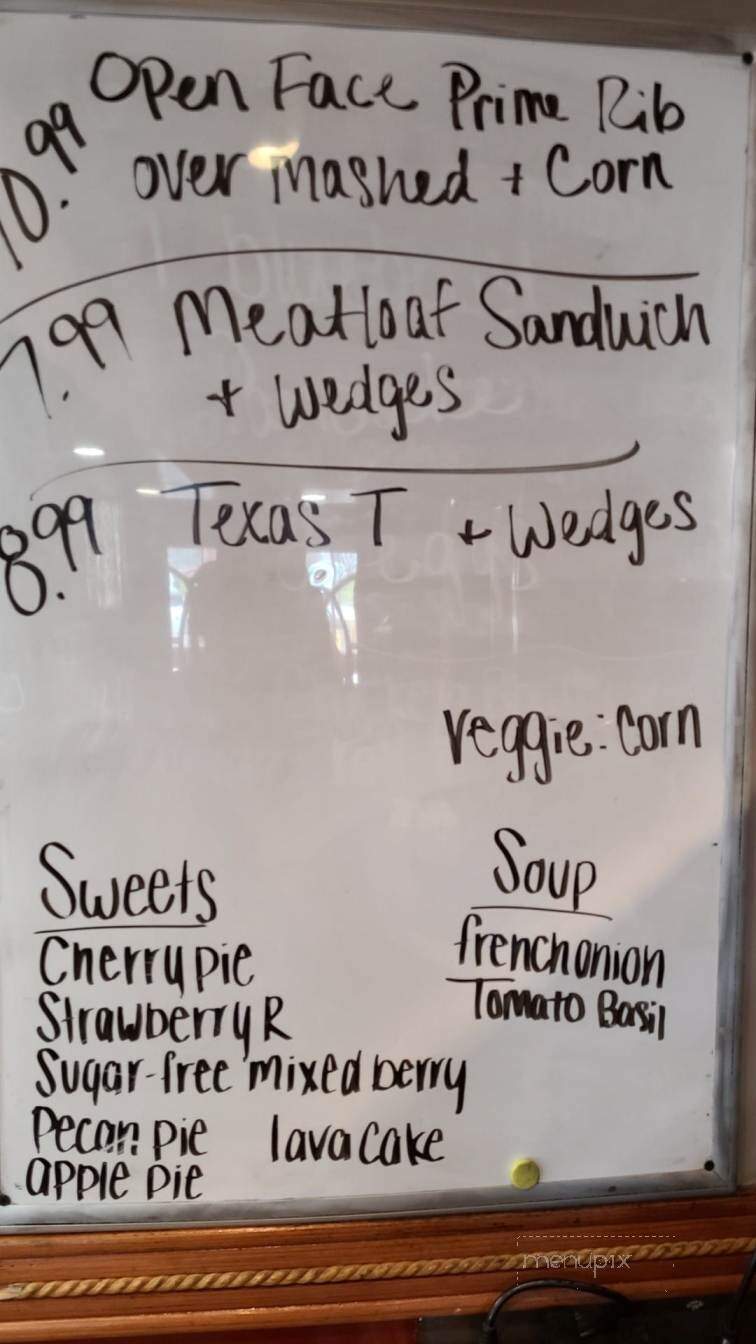 10.99 Open Face Prime Rib
over mashed + Corn
7.99 Meatloaf Sandwich
+ Wedges
8.99 Texas T + Wedges
veggie: corn
Sweets
Cherry pie
Strawberry R
Sugar-free mixed berry
Pecan pie lava cake
apple pie
Soup
french onion
Tomato Basil
menupix